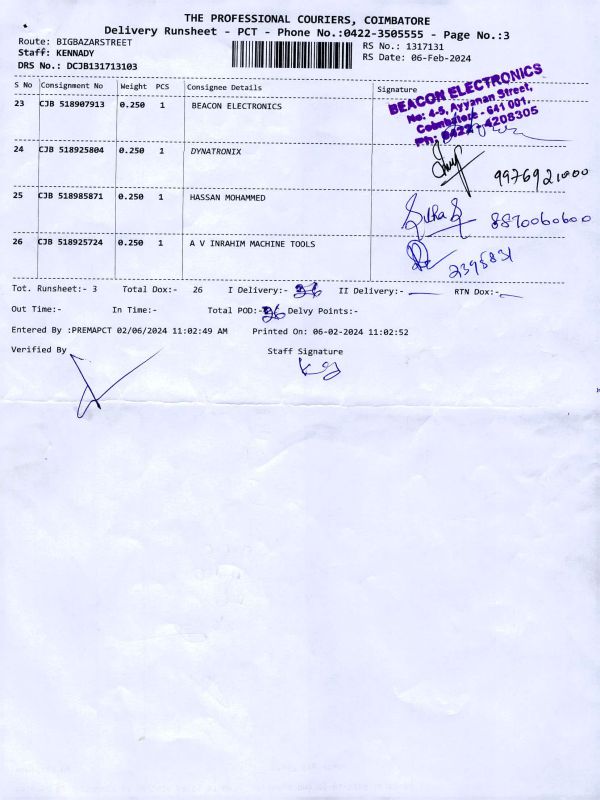 THE PROFESSIONAL COURIERS, COIMBATORE
Delivery Runsheet - PCT - Phone No.:0422-3505555 - Page No.:3
Route: BIGBAZARSTREET
RS No.: 1317131
Staff: KENNADY
RS Date: 06-Feb-2024
DRS No.: DCJB131713103
S No Consignment No Weight PCS Consignee Details Signature
23 CJB 518907913 0.250 1 BEACON ELECTRONICS
BEACON ELECTRONICS
No: 4-5, Ayyanan Street,
Coimbatore - 641 001.
Ph: 0422 - 4208305
24 CJB 518925804 0.250 1 DYNATRONIX
9976921000
25 CJB 518985871 0.250 1 HASSAN MOHAMMED
8870060600
26 CJB 518925724 0.250 1 A V INRAHIM MACHINE TOOLS
2395831
Tot. Runsheet:- 3 Total Dox:- 26 I Delivery:- 26 II Delivery:- RTN Dox:-
Out Time:- In Time:- Total POD:- 26 Delvy Points:-
Entered By :PREMAPCT 02/06/2024 11:02:49 AM Printed On: 06-02-2024 11:02:52
Verified By Staff Signature